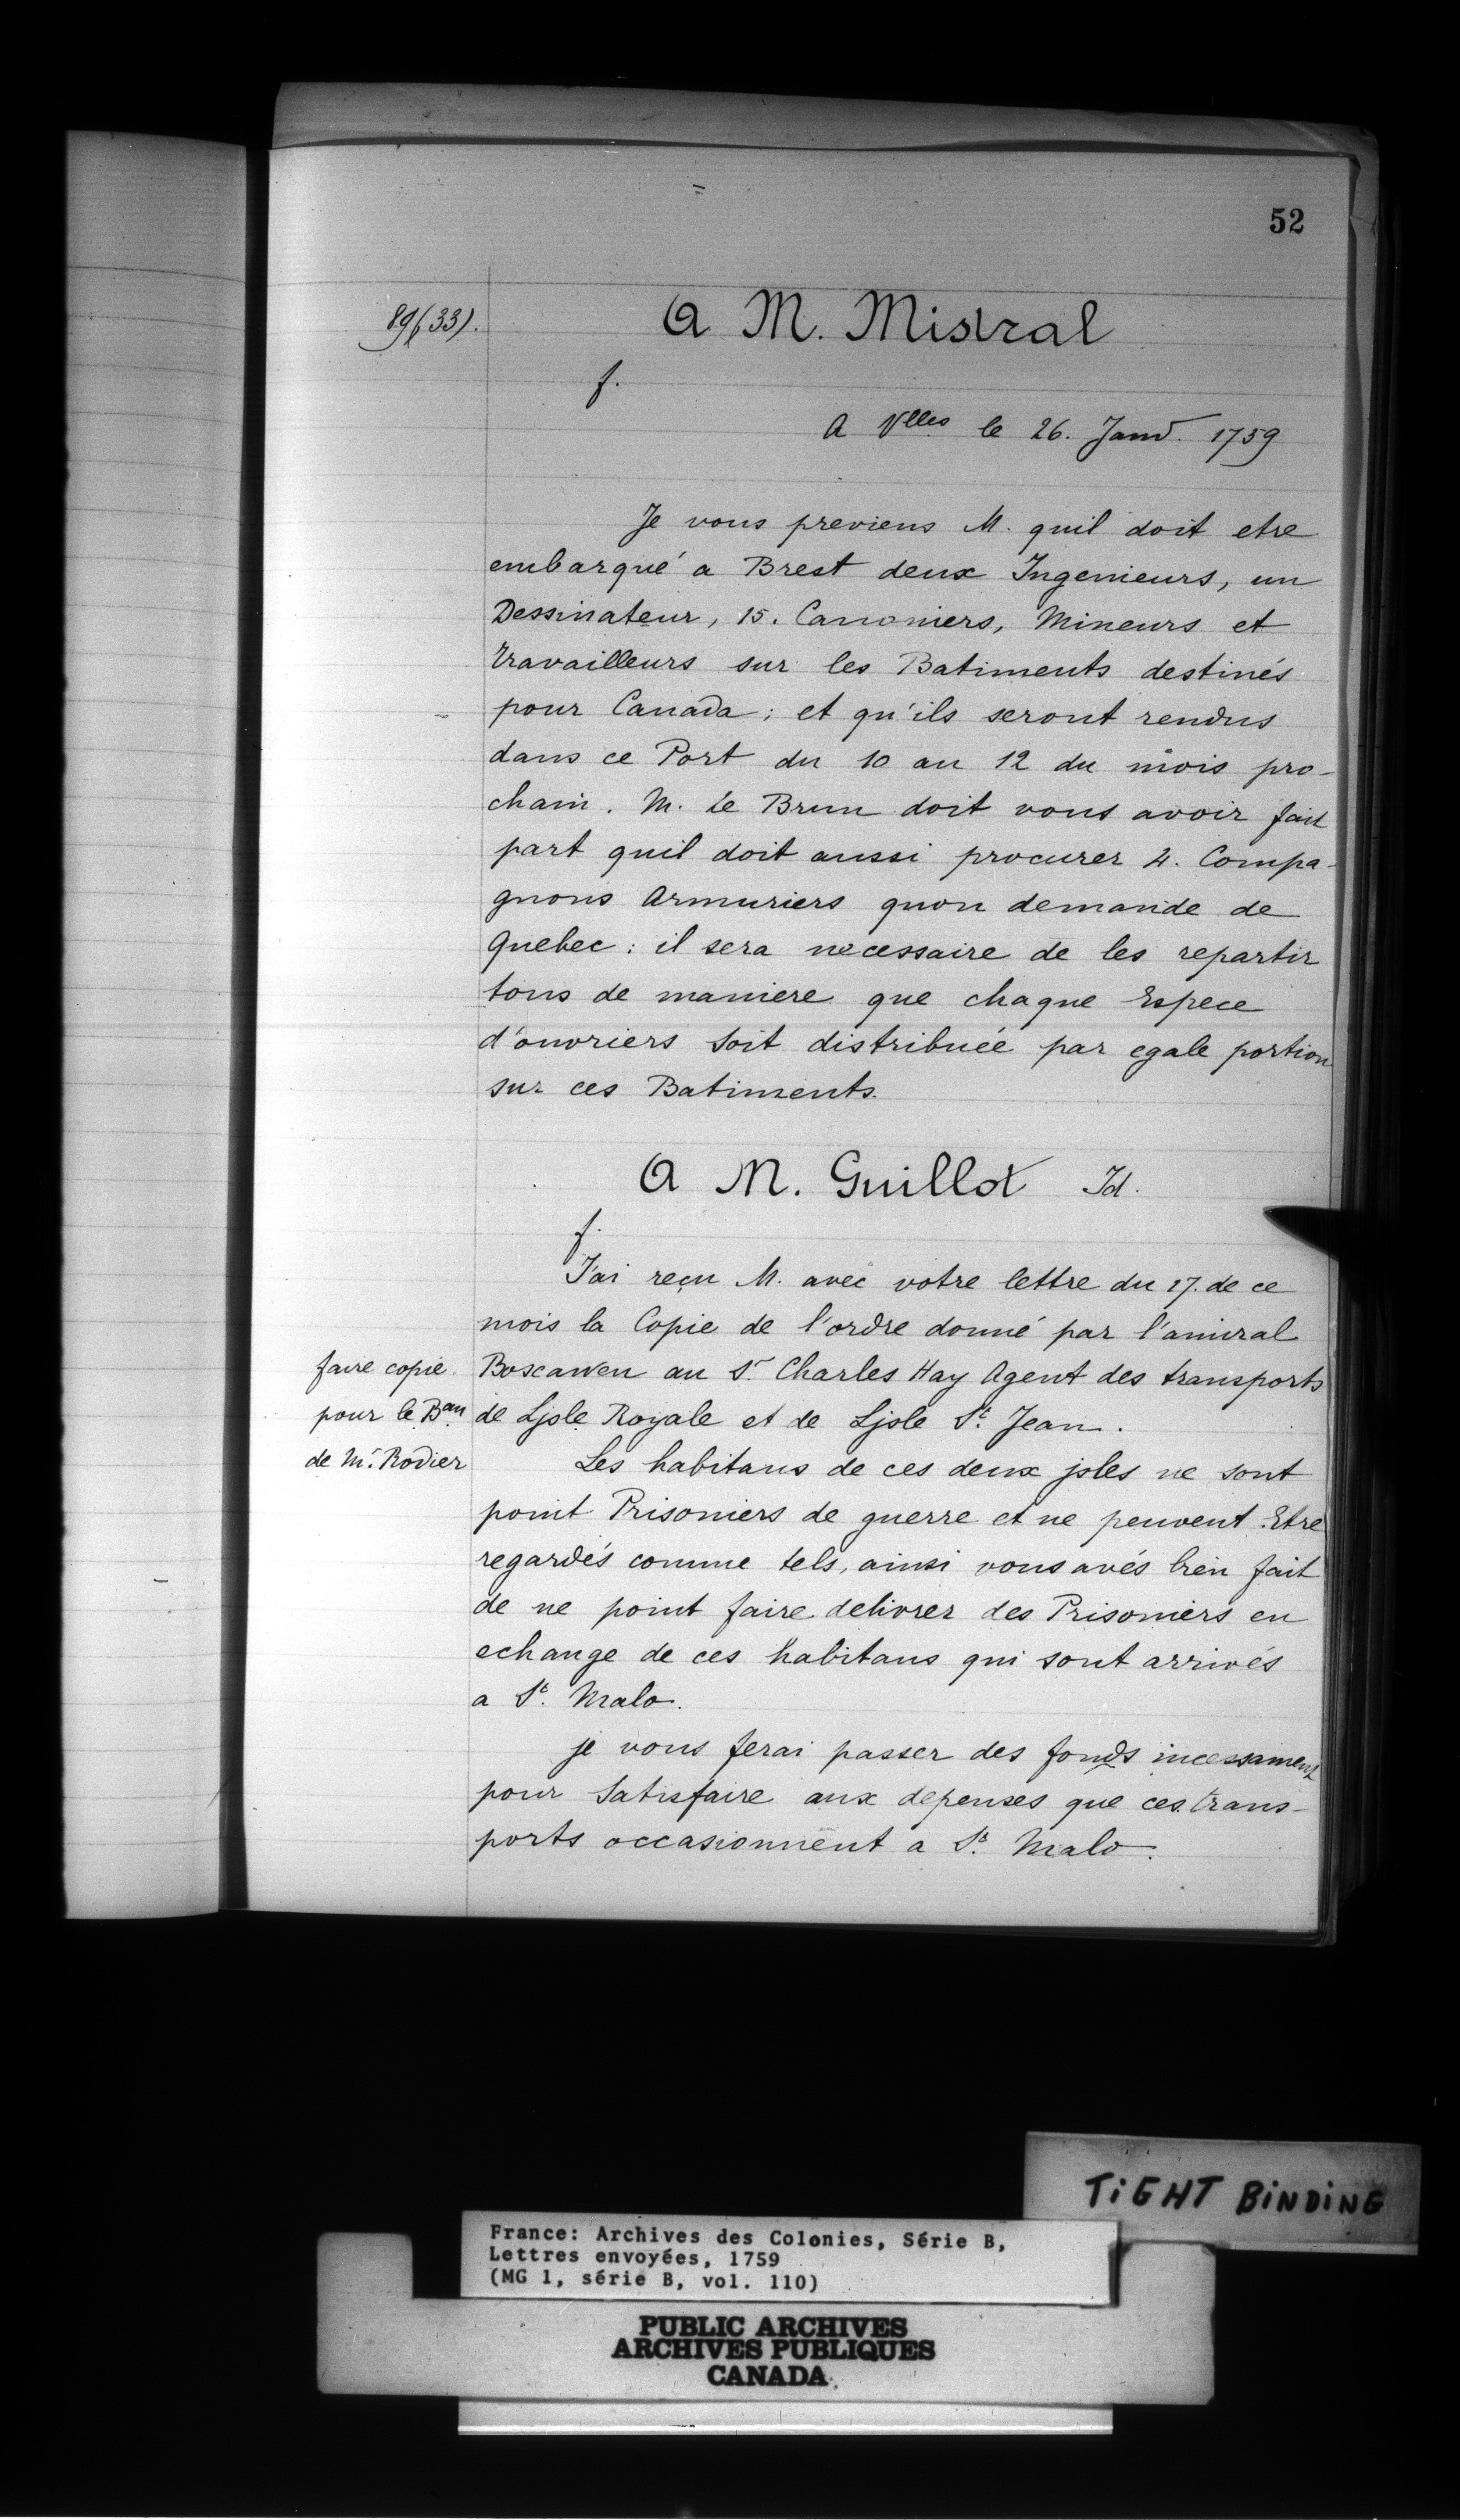 52
89(33).
A M. Mistral
f.
A Vlles le 26. Janv. 1759
Je vous previens M. quil doit etre
embarqué a Brest deux Ingenieurs, un
Dessinateur, 15. Canoniers, Mineurs et
travailleurs sur les Batiments destinés
pour Canada; et qu'ils seront rendus
dans ce Port du 10 au 12 du mois pro-
chain. M. le Brun doit vous avoir fait
part quil doit aussi procurer 4. Compa-
gnons Armuriers quon demande de
Quebec: il sera necessaire de les repartir
tous de maniere que chaque Espece
d'ouvriers soit distribuée par egale portion
sur ces Batiments.
A M. Guillot Id.
f.
J'ai reçu M. avec votre lettre du 17. de ce
mois la Copie de l'ordre donné par l'amiral
faire copie
Boscawen au Sr Charles Hay Agent des transports
pour le Bau
de Ljsle Royale et de Ljsle St. Jean.
de Mr. Rodier
Les habitans de ces deux jsles ne sont
point Prisoniers de guerre et ne peuvent Etre
regardés comme tels, ainsi vous avés bien fait
de ne point faire delivrer des Prisoniers en
echange de ces habitans qui sont arrivés
a St. Malo.
je vous ferai passer des fonds incessament
pour Satisfaire aux depenses que ces trans-
ports occasionnent a St. Malo.
TiGHT BiNDiNG
France: Archives des Colonies, Série B,
Lettres envoyées, 1759
(MG 1, série B, vol. 110)
PUBLIC ARCHIVES
ARCHIVES PUBLIQUES
CANADA